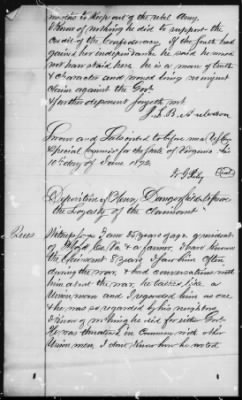 to keep out of the rebel Army.
I know of nothing he did to support the
credit of the Confederacy. If the South had
gained her independence he said he would
not have staid here. he is a man of truth
& character and would bring no unjust
claim against the Govt
& further deponent sayeth not
J. B.
Sworn and Subscribed to before me
Special Commr for the State of Virginia this
10th day of June 1872.
Deposition of Henry Dangerfield before
the Loyalty of the claimant
I am 55 years of age, a resident
of Co Va & a farmer, I have known
the claimant 8 years I saw him often
during the war, & had conversations with
him about the war, he talked like a
Union man and I regarded him as one
& he was so regarded by his neighbors
I know of nothing he did for either Govt.
He was threatened in common with other
Union men, I don't know how he voted.